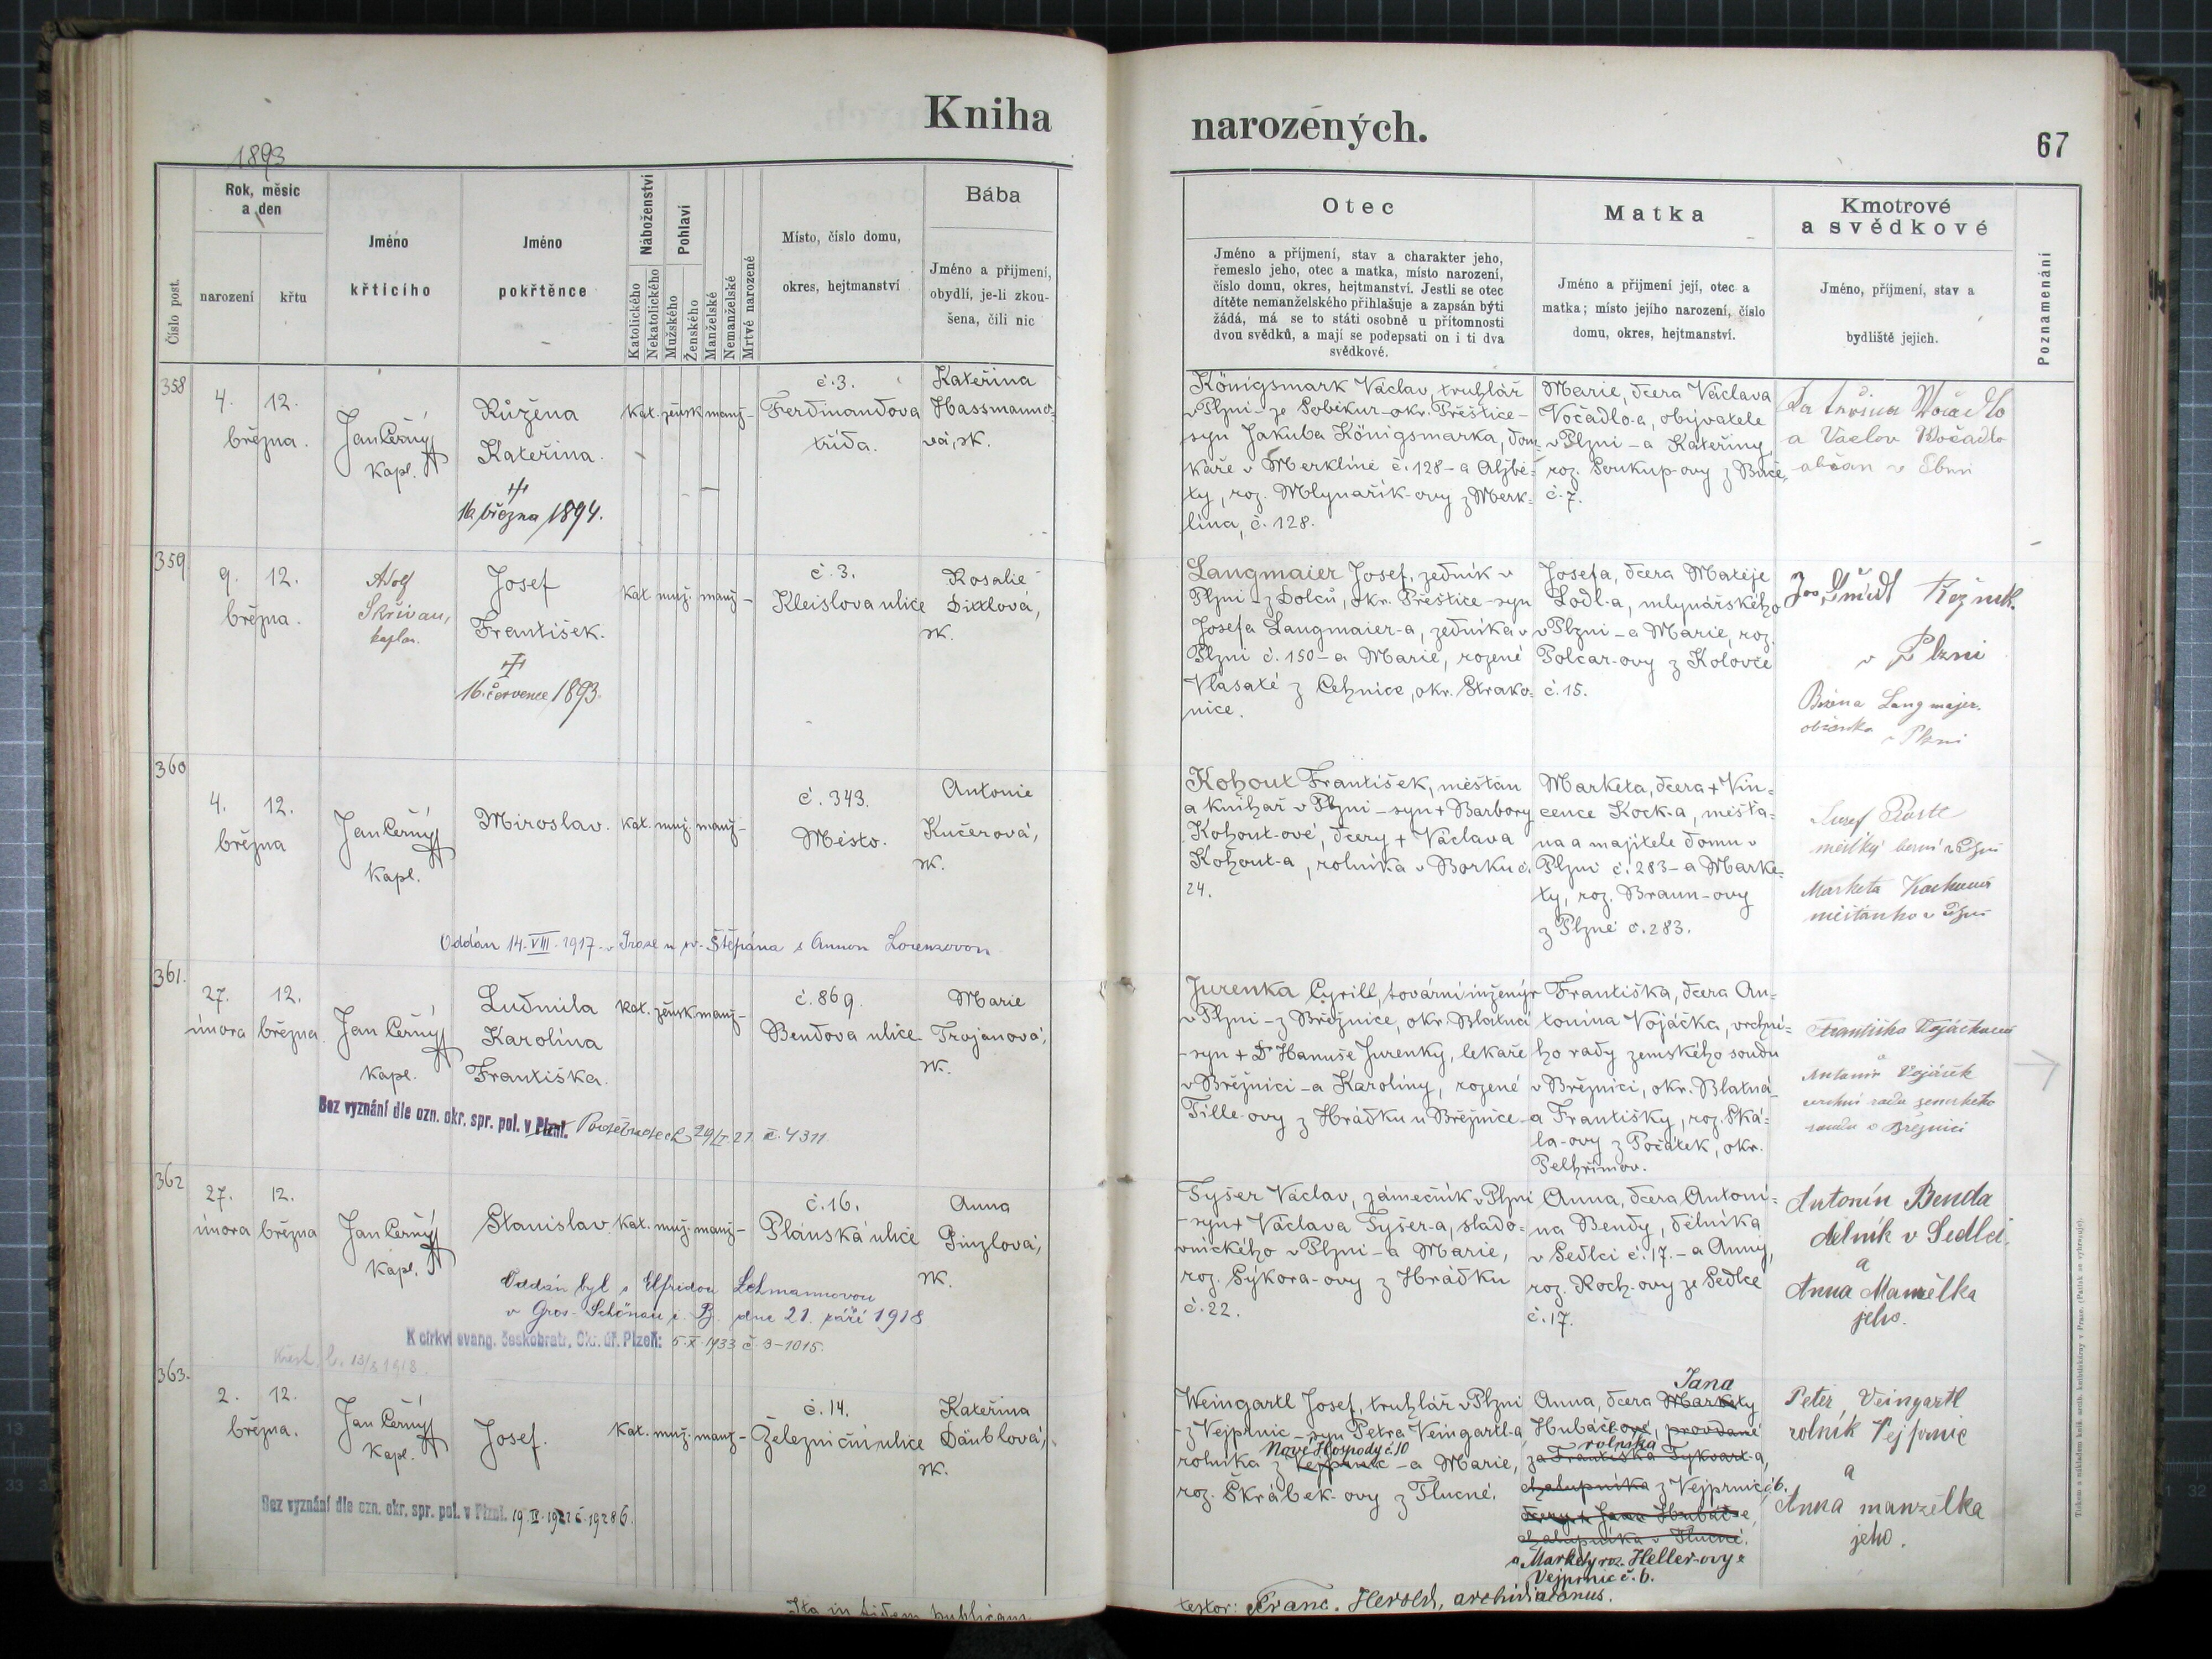 Kniha
narozených.
67
1893
Číslo post.
Rok, měsíc
a den
narození
křtu
Jméno
křtícího
Jméno
pokřtěnce
Náboženství
Katolického
Nekatolického
Pohlaví
Mužského
Ženského
Manželské
Nemanželské
Mrtvě narozené
Místo, číslo domu,
okres, hejtmanství
Bába
Jméno a příjmení,
obydlí, je-li zkou-
šena, čili nic
Otec
Jméno a příjmení, stav a charakter jeho,
řemeslo jeho, otec a matka, místo narození,
číslo domu, okres, hejtmanství. Jestli se otec
dítěte nemanželského přihlašuje a zapsán býti
žádá, má se to státi osobně u přítomnosti
dvou svědků, a mají se podepsati on i ti dva
svědkové.
Matka
Jméno a příjmení její, otec a
matka; místo jejího narození, číslo
domu, okres, hejtmanství.
Kmotrové
a svědkové
Jméno, příjmení, stav a
bydliště jejich.
Poznamenání
358
4. 12.
března.
Jan Černý
kapl.
Růžena
Kateřina.
16. března 1894.
kat. žensk. manž. –
č. 3.
Ferdinandova
třída.
Kateřina
Hassmanno-
vá, zk.
Königsmark Václav, truhlář
v Plzni – ze Soběkur – okr. Přeštice –
syn Jakuba Königsmarka, dom-
káře v Merklíně č. 128 – a Alžbě-
ty, roz. Mlynařík-ovy z Merk-
lína, č. 128.
Marie, dcera Václava
Vočadlo-a, obývatele
v Plzni – a Kateřiny,
roz. Soukup-ovy z
č. 7.
Kateřina Wočadlo
a Václav Wočadlo
občan v
359
9. 12.
března.
Adolf
Skřivan,
kaplan.
Josef
František.
16. července 1893.
kat. muž. manž –
č. 3.
Kleislova ulice
Rosalie
Dittlová,
zk.
Langmaier Josef, zedník v
Plzni – z Dolců, okr. Přeštice – syn
Josefa Langmaier-a, zedníka v
Plzni č. 150 – a Marie, rozené
Vlasaté z Cehnice, okr. Strako-
nice.
Josefa, dcera Matěje
Lodl-a, mlynářského
v Plzni – a Marie, roz.
Polcar-ovy z Koloveč
č. 15.
Jos. Šmídl Řezník
v Plzni
Božena Langmajer.
občanka
v Plzni
360
4. 12.
března
Jan Černý
kapl.
Miroslav.
kat. muž. manž –
č. 343.
Město.
Antonie
Kučerová,
zk.
Oddán 14. VIII. 1917 v Praze u sv. Štěpána s Annou Lorenzovou
Kohout František, měšťan
a knihař v Plzni – syn + Barbory
Kohout-ové, dcery + Václava
Kohout-a, rolníka v Borku č.
24.
Marketa, dcera + Vin-
cence Kock-a, měšťa-
na a majitele domu v
Plzni č. 283 – a Marke-
ty, roz. Braun-ovy
z Plzně č. 283.
Josef
v Plzni
Marketa
měšťanka v Plzni
361.
27. 12.
února března
Jan Černý
kapl.
Ludmila
Karolina
Františka.
kat. žensk. manž –
č. 869.
Bendova ulice
Marie
Trojanová,
zk.
Bez vyznání dle ozn. okr. spr. pol. v Plzni. Poděbradech 29/IV. 21. č. 4311
Jurenka Cyrill, tovární inženýr
v Plzni – z Březnice, okr. Blatná
– syn + Dr Hanuše Jurenky, lekaře
v Březnici – a Karolíny, rozené
Tille-ovy z Hrádku u Březnice –
Františka, dcera An-
tonína Vojáčka, vrchní-
ho rady zemského soudu
v Březnici, okr. Blatná
a Františky, roz. Ská-
la-ovy z Počátek, okr.
Pelhřimov.
Františka Vojáčková
a
Antonín Vojáček
vrchní rada zemského
soudu v Březnici
362
27. 12.
února března
Jan Černý
kapl.
Stanislav.
kat. muž. manž –
č. 16.
Plánská ulice
Anna
Pinzlová,
zk.
Oddán byl s Elfridou Lehmannovou
v Gros-Schönau dne 21. září 1918
K církvi evang. českobratr. Okr. úř. Plzeň: 5. X. 1933 č. 9-1015.
Křest. l. 13/3 1918.
Tyšer Václav, zámečník v Plzni
– syn + Václava Tyšer-a, slado-
vnického v Plzni – a Marie,
roz. Sýkora-ovy z Hrádku
č. 22.
Anna, dcera Antoní-
na Bendy, dělníka
v Sedlci č. 17. – a Anny,
roz. Koch-ovy ze Sedlce
č. 17.
Antonín Benda
dělník v Sedlci.
a
Anna Manželka
jeho.
363.
2. 12.
března.
Jan Černý
kapl.
Josef.
kat. muž. manž –
č. 14.
Železniční ulice
Kateřina
Däublová,
zk.
Bez vyznání dle ozn. okr. spr. pol. v Plzni. 19. IV. 1922 č. 19286.
Weingartl Josef, truhlář v Plzni
– z Vejprnic – syn Petra Veingartl-a,
Nové Hospody č. 10
rolníka z Vejprnic – a Marie,
roz. Škrábek-ovy z Tlucné.
Jana
Anna, dcera Markety
Hubáč-ové, provdané
rolníka
za Františka Tykvart-a,
chalupníka z Vejprnic č. 6.
dcery + Jana Hubáč-e,
chalupníka v Tlucné.
a Markety roz. Heller-ovy z
Vejprnic č. 6.
Peter Veingartl
rolník Vejprnic
a
Anna manželka
jeho.
Ita in fidem publicam
testor: Franc. Herold, archidiaconus.